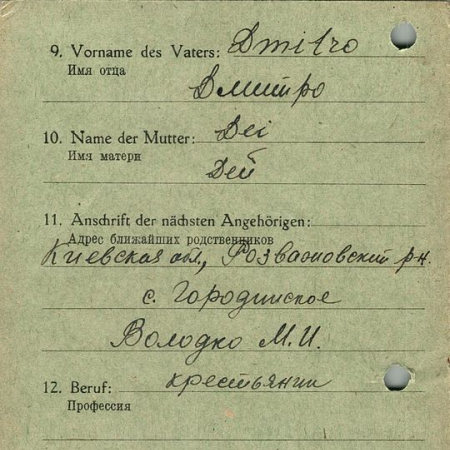 9. Vorname des Vaters: Dmitro
Имя отца
Дмитро
10. Name der Mutter: Dei
Имя матери
Дей
11. Anschrift der nächsten Angehörigen:
Адрес ближайших родственников
Киевская обл., Розважовский р-н.
с. Городинское
Володко М.И.
12. Beruf: крестьянин
Профессия